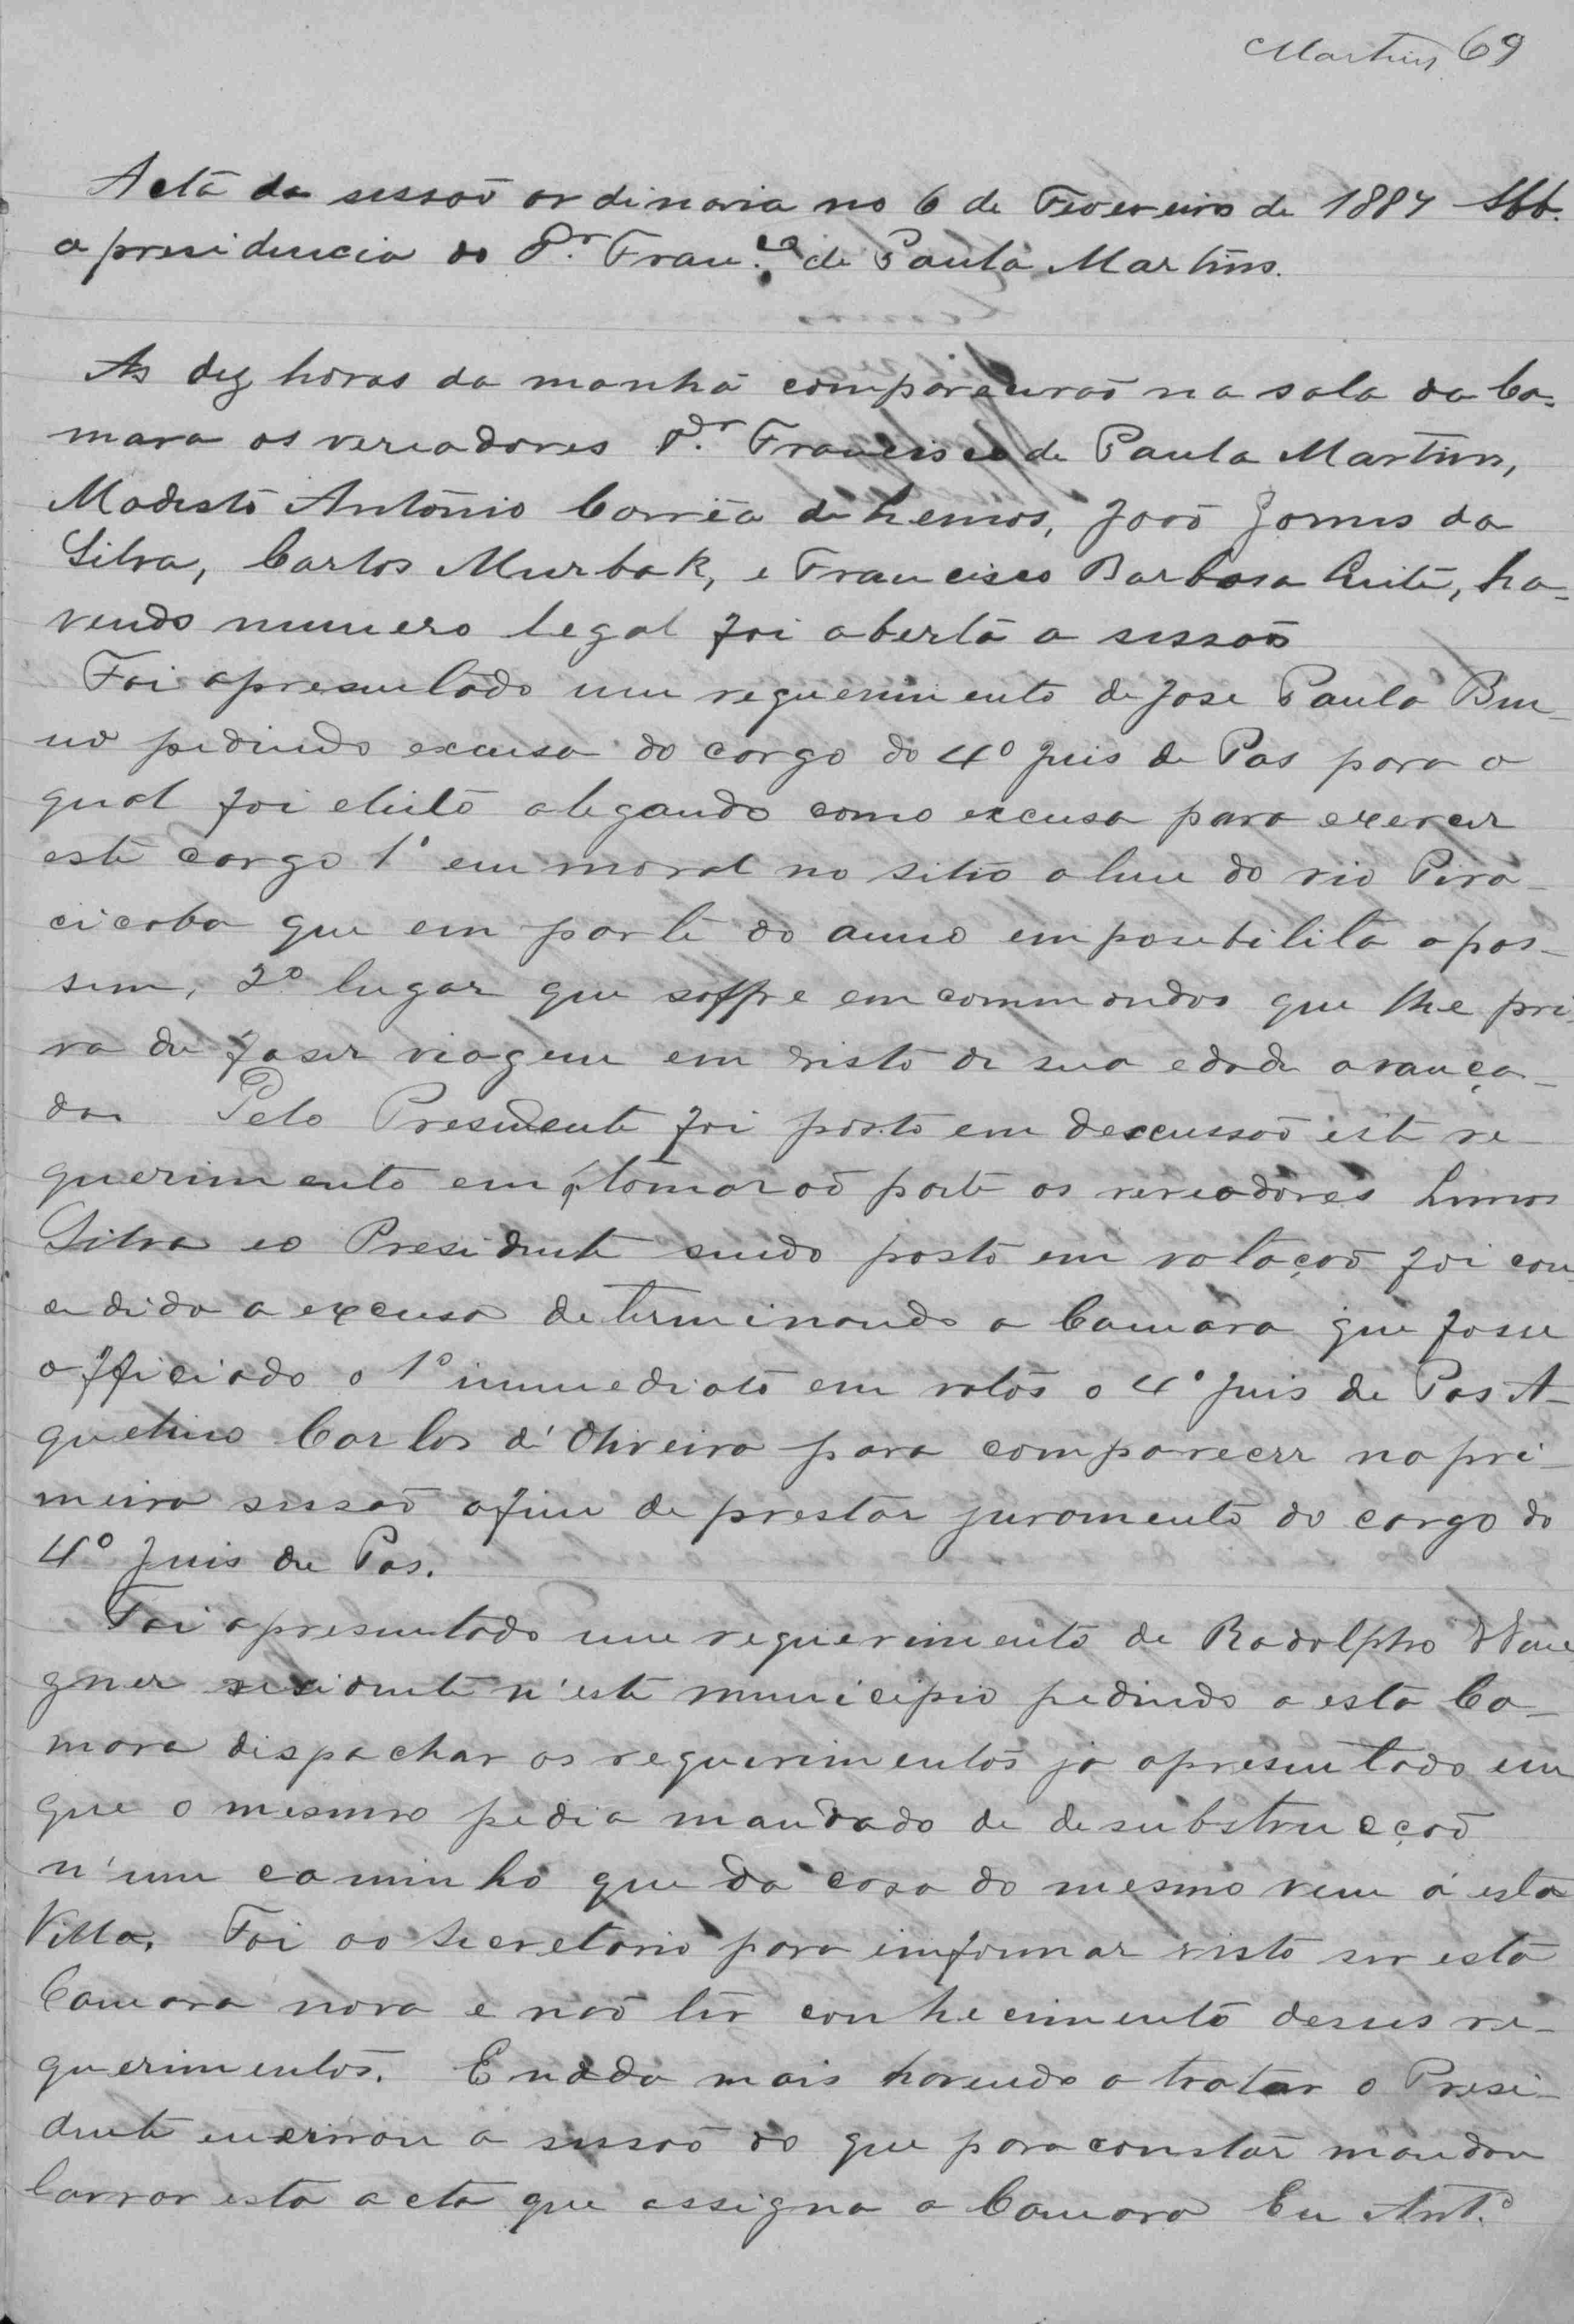 Martins 69
Acta da sessaõ ordinaria no 6 de Fevereiro de 1887 Sob.
a presidencia do Dr. Franco. de Paula Martins.
As dez horas da manhã compareceraõ na sala da Ca-
mara os vereadores Dr. Francisco de Paula Martins,
Modesto Antonio Corrêa de Lemos, Joaõ Gomes da
Silva, Carlos Murbak, e Francisco Barbosa Leite, ha-
vendo numero legal foi aberta a sessaõ
Foi apresentado um requerimento de Jose Paula Bue-
no pedindo excusa do cargo do 4º Juis de Pas para o
qual foi eleito alegando como excusa para exercer
este cargo 1º em morar no sitio alem do rio Pira-
cicaba que em parte do anno emposebilita a pas-
sem, 2º lugar que soffre emcommondos que lhe pri-
va de faser viagem em visto de sua edade avança-
da. Pelo Presidente foi posto em descussaõ este re-
querimento em q tomaraõ parte os vereadores Lemos
Silva e o Presidente sendo posto em votaçaõ foi con-
cedida a excusa determinando a Camara que fosse
officiado o 1º immediato em votos o 4º Juis de Pas A-
quelino Carlos d'Oliveira para comparecer na pri-
meira sessaõ afim de prestar juramento do cargo do
4º Juis de Pas.
Foi apresentado um requerimento de Rodolpho
gner residente n'este municipio pedindo a esta Ca-
mara dispachar os requerimentos ja apresentado em
que o mesmo pedia mandado de desubstrucçaõ
n'um caminho que da casa do mesmo vem á esta
Villa. Foi ao Secretario para imformar visto ser esta
Camara nova e naõ ter conhecimento desses re-
querimentos. E nada mais havendo a tratar o Presi-
dente encerrou a sessaõ do que para constar mandou
lavrar esta acta que assigna a Camara Eu Anto.